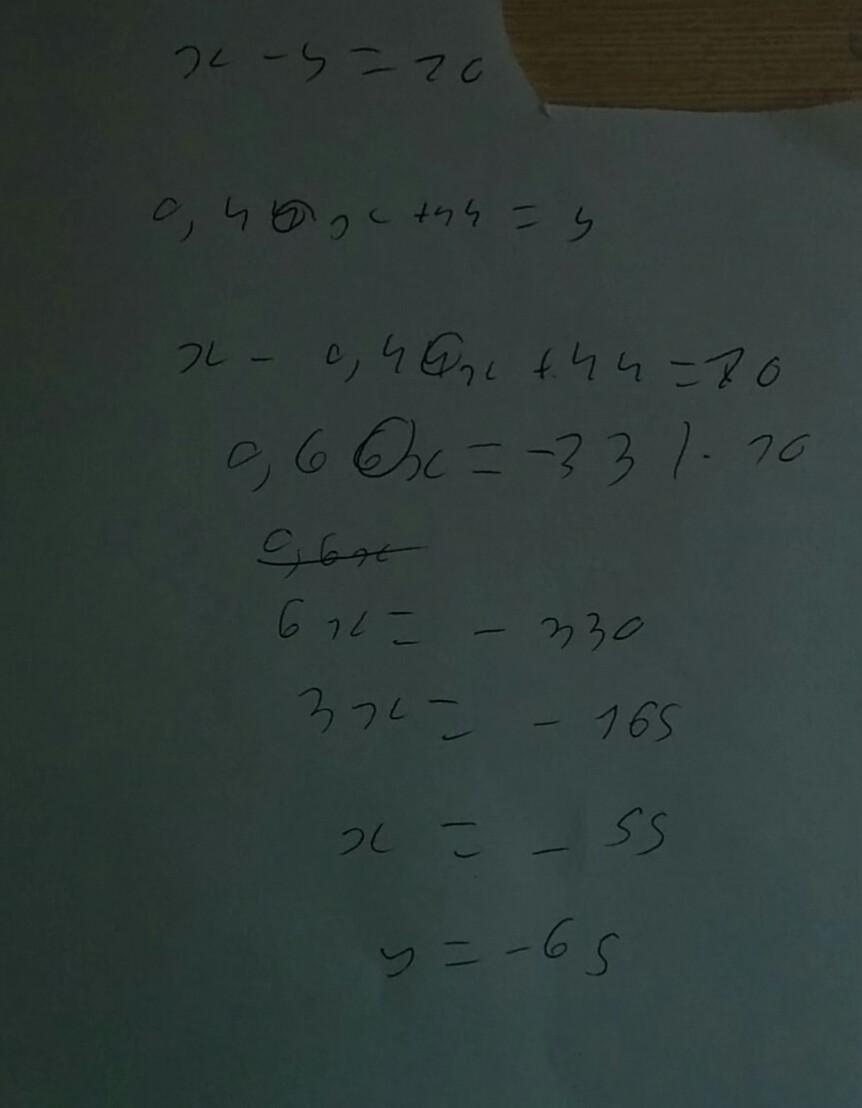 x - y = 10
0,4x +44 = y
x - 0,4x +44 = 10
0,6x = -33 /· 10
0,6x
6x = - 330
3x = - 165
x = - 55
y = -65